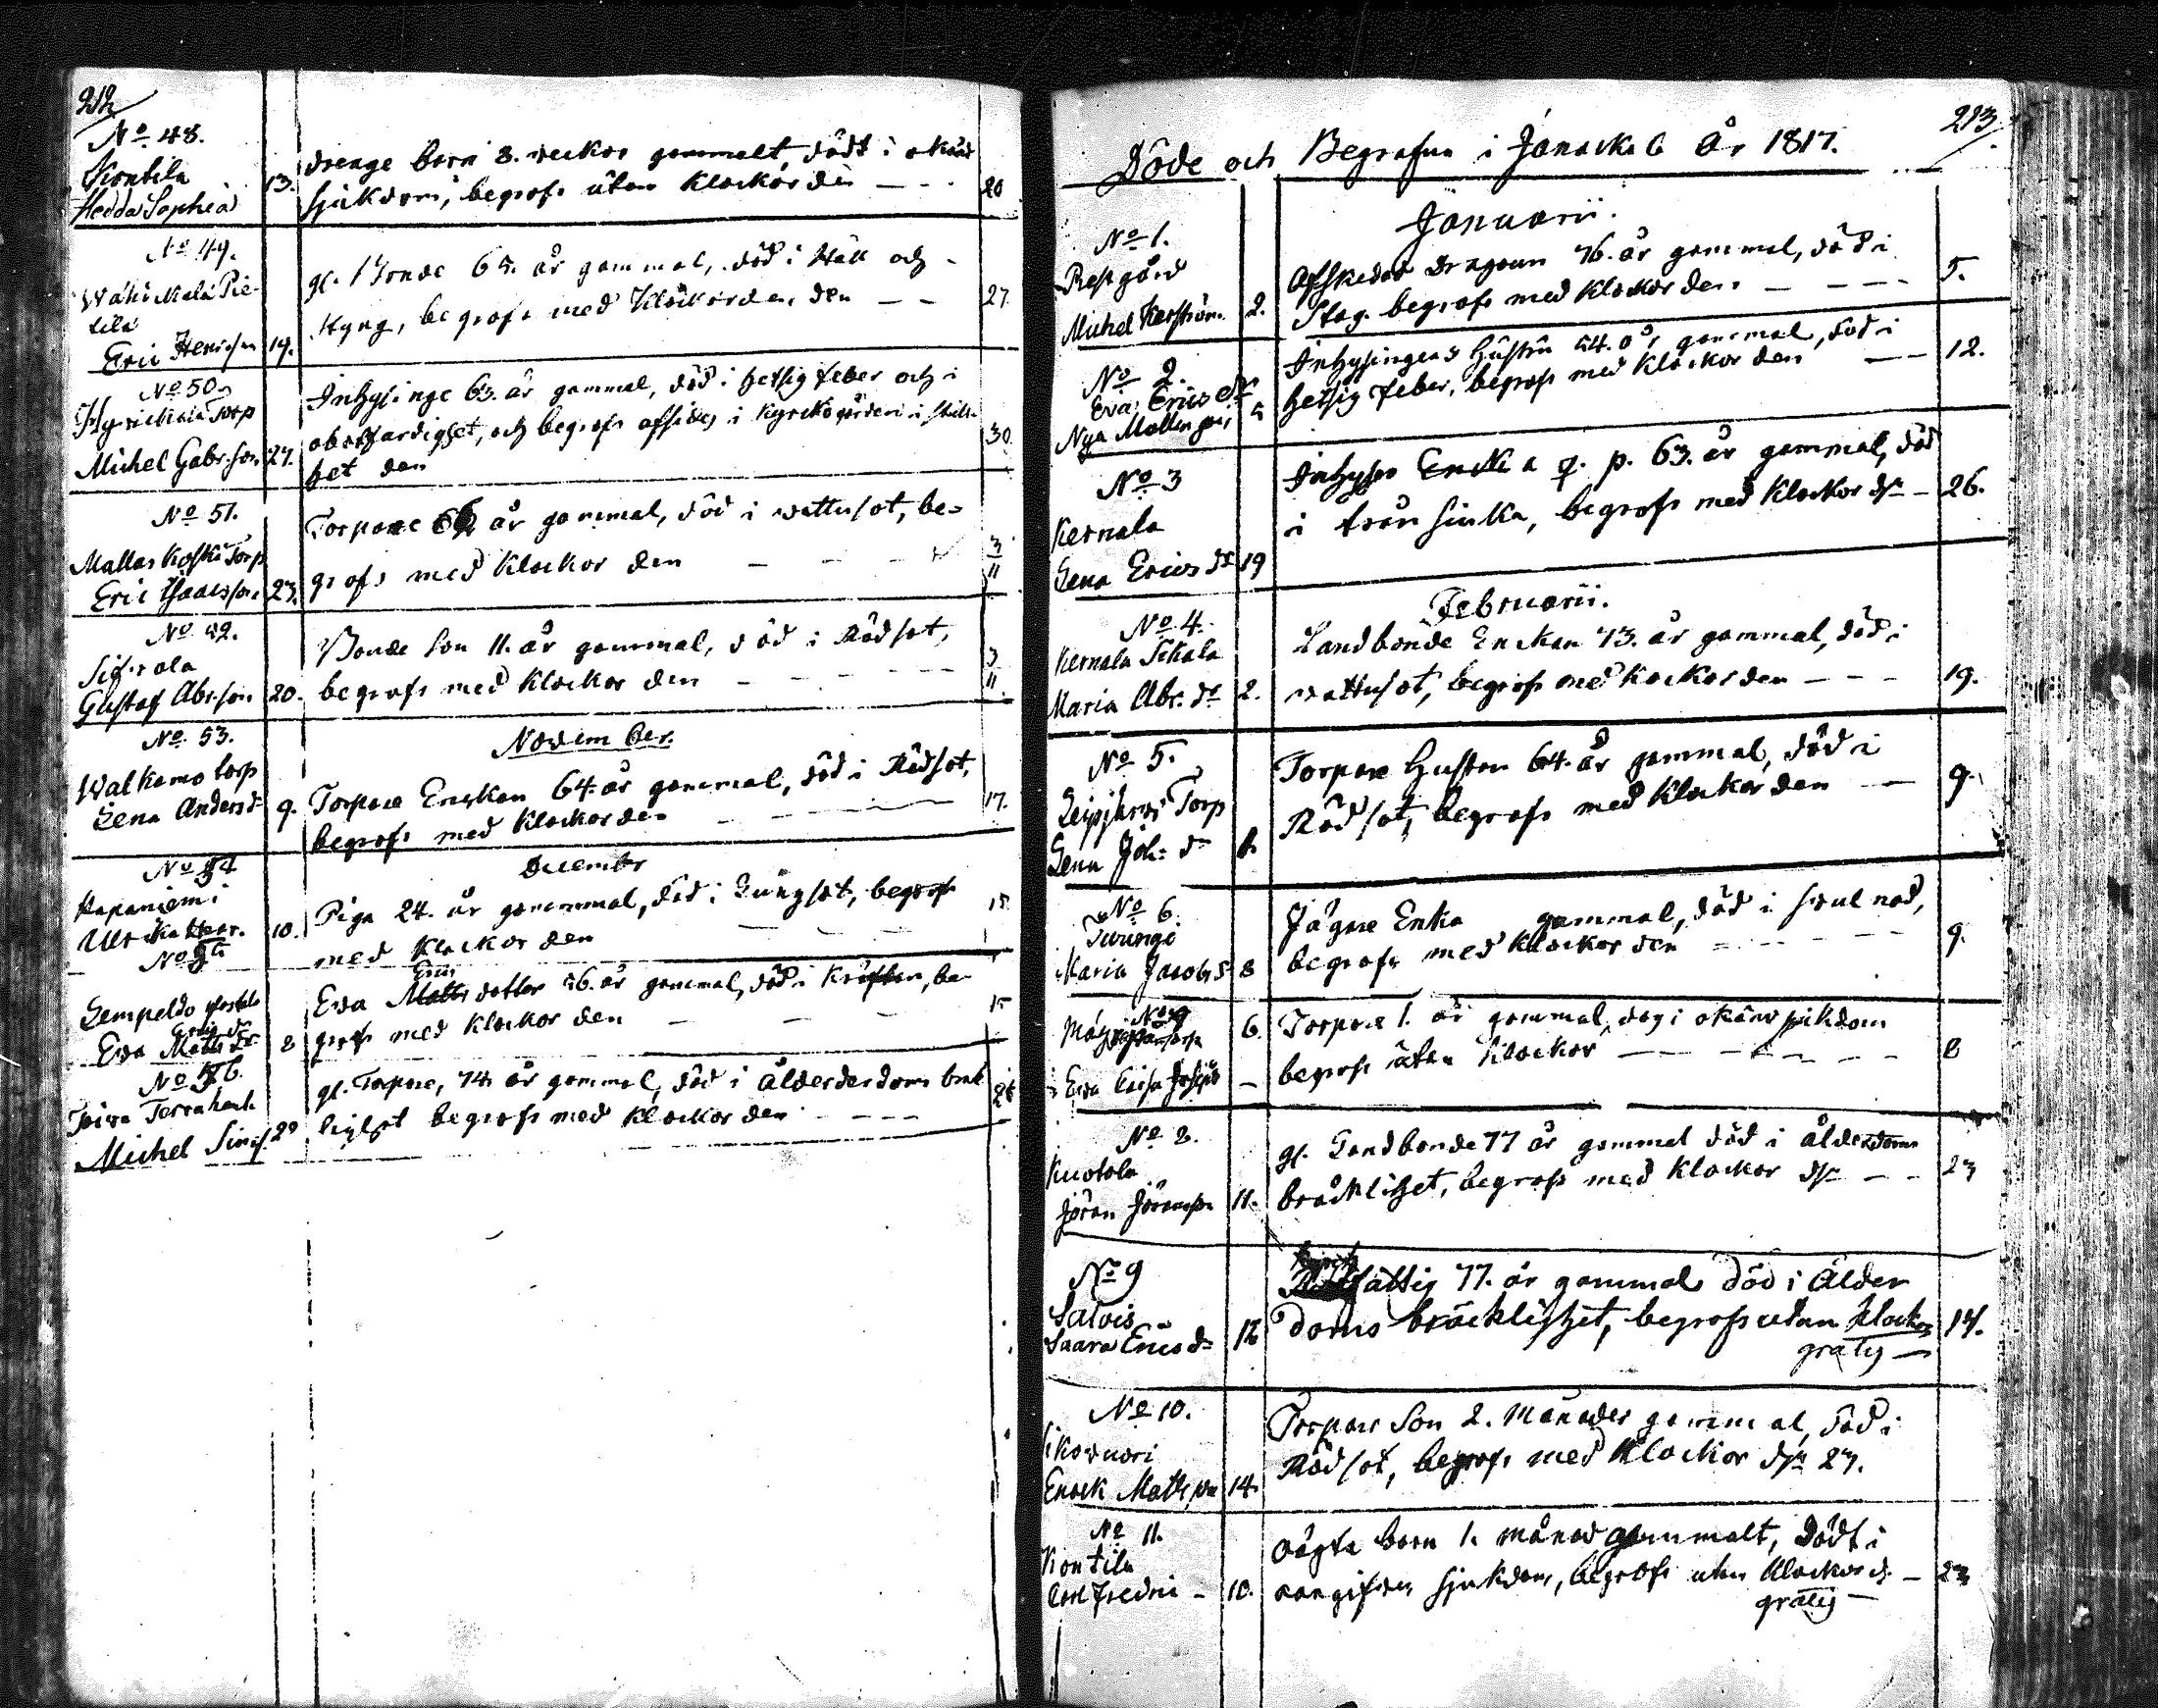 212
No 48.
Kontila
Hedda Sophia 13.
drenge barn 8. veckor gammalt, dödt i okänd
sjukdom, begrofs utan klockor den — 20
No 49.
Wähickala Pie-
tila
Eric Henricsson 19.
gl. Bonde 65. år gammal, död i Håll och
styng, begrofs med klockor den den — 27
No 50.
Torp
Michel Gabr.son 27.
Inhysinge 63. år gammal, död i hetsig feber och i
obotfärdighet, och begrofs afsides i kyrkogården i still-
het den 30.
No 51.
Mallaskoski Torp
Eric Isaacsson 23.
Torpare år gammal, död i wattusot, be-
grofs med klockor den — 3/11
No 52.
Gustaf Abr.son 20.
Bonde Son 11. år gammal, död i Rödsot,
begrofs med klockor den — 3/11
No 53.
Walkamo torp
Lena Andersd: 9.
November.
Torpare Enckan 64. år gammal, död i Rödsot,
begrofs med klockor den — 17.
No 54
Hapaniemi
Ulrika 10.
December
Piga 24. år gammal, död i Lungsot, begrofs
med klockor den — 15
No
Lempeldo
Erics dr
Eva Matts dr 8
Erics
Eva Matts dotter 56. år gammal, död i Kräftan, be-
grofs med klockor den — 15
No 56.
Michel Sim.s. 29
gl. Torpare, 74 år gammal, död i ålderderdoms bräck
lighet begrofs med klockor den — 26
213.
Döde och Begrafne i Janackala År 1817.
Januarii.
No 1.
Prestgård
Michel 2.
Afskedad Dragoun 76. år gammal, död i
Slag. begrofs med klockor den — 5.
No 2.
Eva Erics dr
Nya Mallinpai 5
Inhysinges Hustru 54. år gammal, död i
hetsig feber, begrofs med klockor den — 12.
No 3
Kernala
Lena Erics dr 19
Inhyses Encka q. p. 63. år gammal, död
i tvinsiuka, begrofs med klockor dn — 26.
Februarii.
No 4.
Kernala Sikala
Maria Abr. dr 2.
Landbonde Enckan 73. år gammal, död i
wattusot, begrofs med kockor den — 19.
No 5.
Torp
Lena Joh: dr 1.
Torpare Hustru 64. år gammal, död i
Rödsot, begrofs med klockor den — 9.
No 6.
Turengi
Maria Jacobs d 8
Jägare Enka gammal, död i svulnad,
begrofs med klockor den — 9.
No 7
Eva Caisa 6.
Torpare 1. år gammal, dog i okänd sjukdom
begrofs utan klockor — 8
No 8.
Kuotola
Jöran Jöransson 11.
gl. Landbonde 77 år gammal död i ålderdoms
bräcklighet, begrofs med klockor dn — 23
No 9
Salois
Saara Erics d: 12
77. år gammal död i Ålder
doms bräcklighet, begrofs utan klockor 14.
gratis —
No 10.
Enock Matsson 14.
Torpare Son 2. Månader gammal, död i
Rödsot, begrofs med klockor dn 23.
No 11.
Kontila
Carl Fredric — 10.
oägta barn 1. månad gammalt, Dödt i
oangifven sjukdom, begrofs utan klockor d. — 23
gratis —